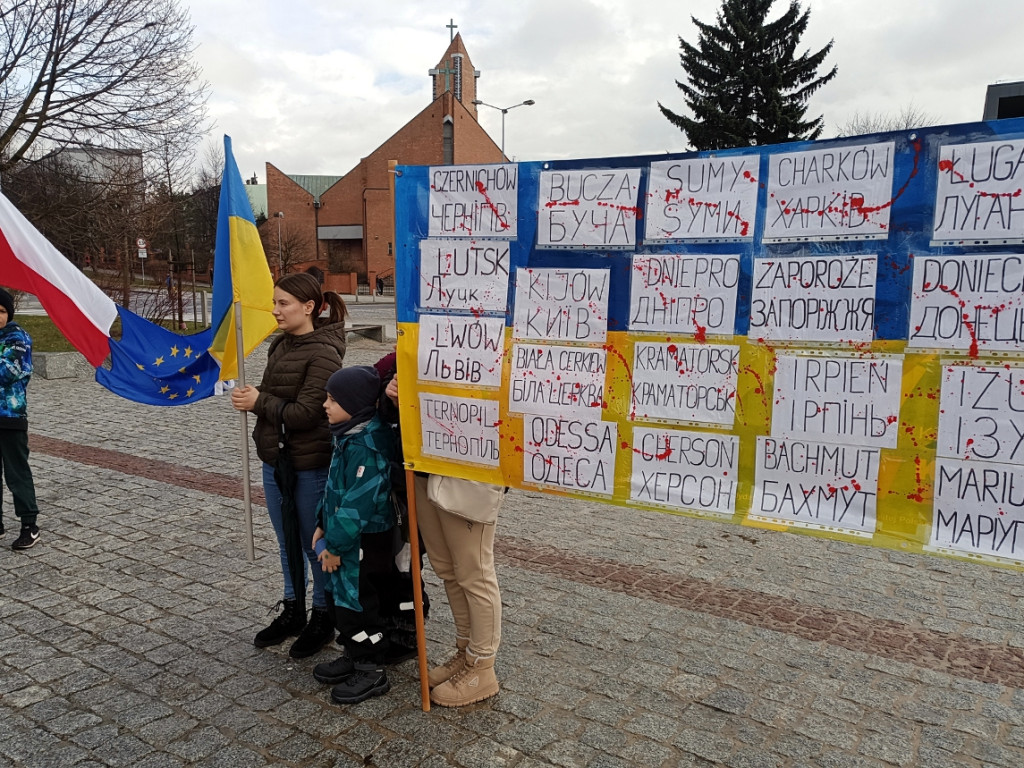 CZERNICHÓW
ЧЕРНІГІВ
BUCZA
БУЧА
SUMY
SУМИ
CHARKÓW
ХАРКІВ
ŁUGA
ЛУГАН
ŁUTSK
Луцк
KIJÓW
КИЇВ
DNIEPRO
ДНІПРО
ZAPOROŻE
ЗАПОРІЖЖЯ
DONIEC
ДОНЕЦ
LWÓW
Львів
BIAŁA CERKIEW
БІЛА ЦЕРКВА
KRAMATORSK
КРАМАТОРСЬК
IRPIEŃ
ІРПІНЬ
IZU
ІЗУ
TERNOPIL
ТЕРНОПІЛЬ
ODESSA
ОДЕСА
CHERSON
ХЕРСОН
BACHMUT
БАХМУТ
MARIU
МАРІУП